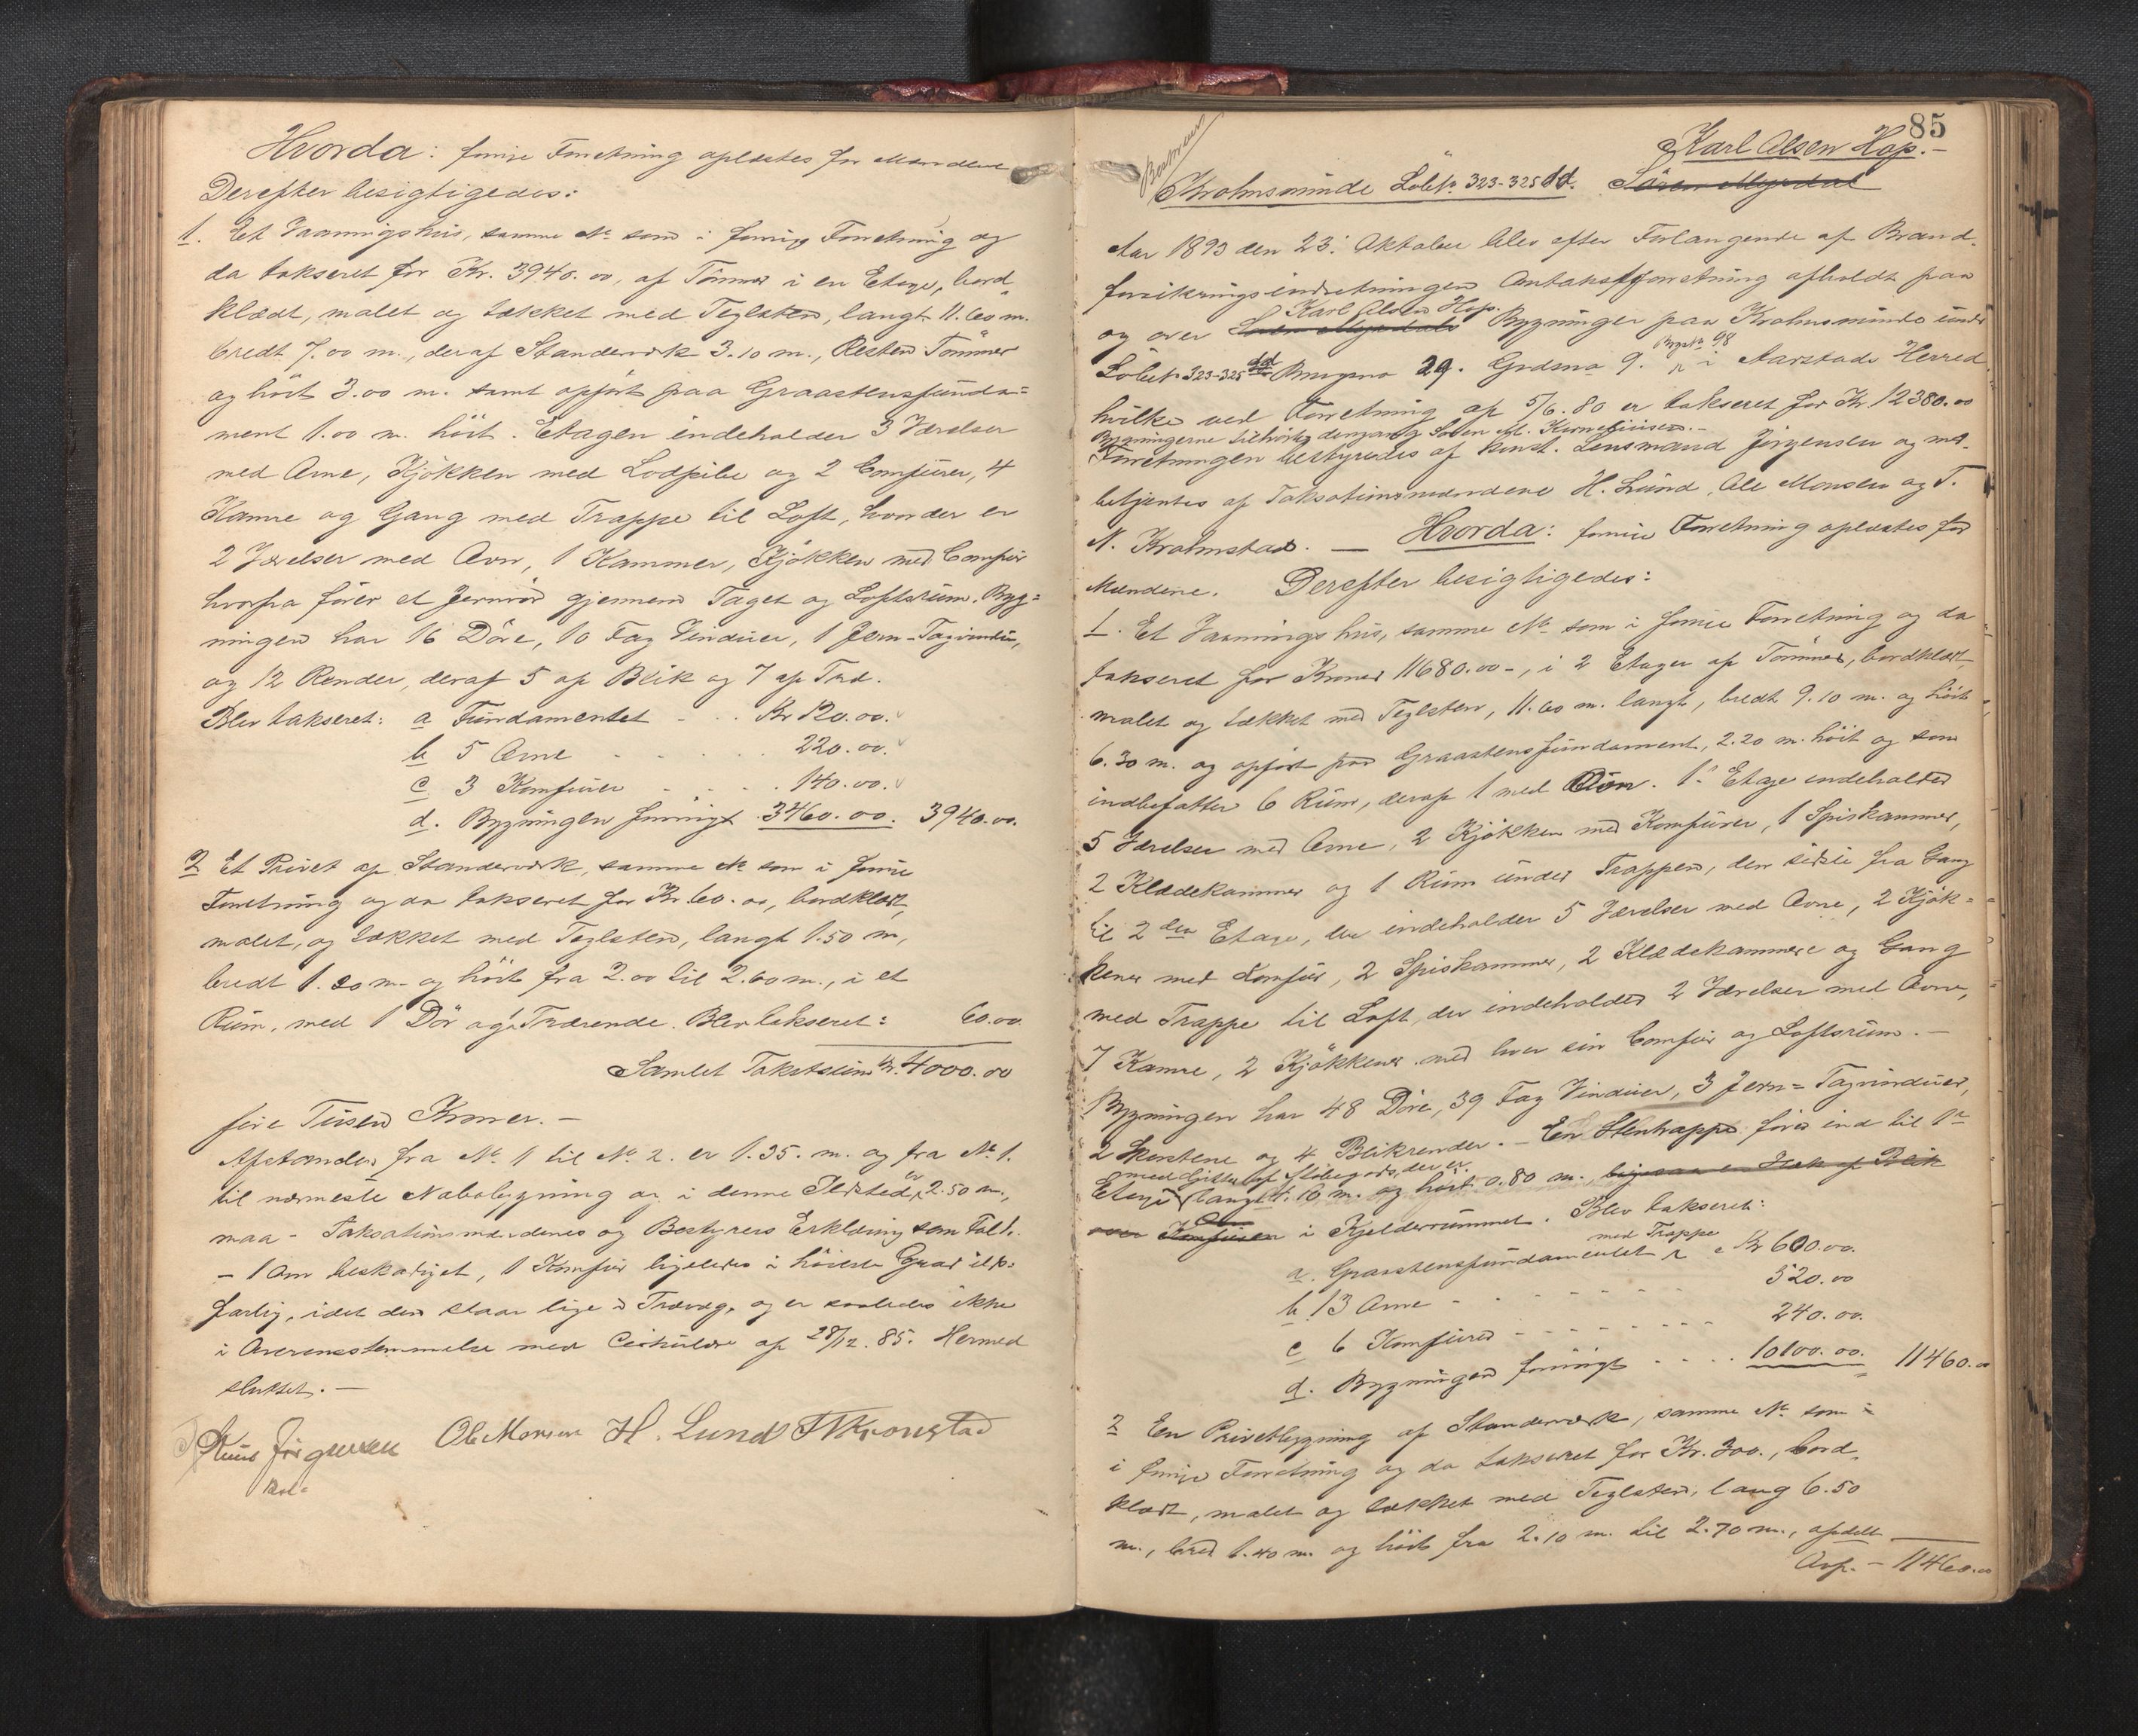 Hvorda: forrige Forretning oplæstes for Mændene
Derefter besigtigedes:
1. Et Vaaningshus, samme No som i forrige Forretning og
da takseret for Kr. 3940.00, af Tömmer i en Etage, bord-
klædt, malet og tækket med Teglsten, langt 11.60 m.
bredt 7.00 m., deraf Standerværk 3.10 m., Resten Tömmer
og höit 3.00 m. samt opfört paa Graastensfunda=
ment 1.00 m. höit. Etagen indeholder 3 Værelser
med Ovne, Kjökken med Lodpibe og 2 Comfurer, 4
Kamre og Gang med Trappe til Loft, hvorder er
2 Værelser med Ovn, 1 Kammer, Kjökken med Comfur
hvorfra förer et Jernrör gjennem Taget og Loftsrum. Byg=
ningen har 16 Döre, 10 Fag Vinduer, 1 Jern-Tagvindu,
og 12 Render, deraf 5 af Blik og 7 af Træ.
Blev takseret: a Fundamentet - . . Kr 120.00.
b 5 Ovne - - - - . 220.00.
c 3 Komfurer - - - . 140.00.
d. Bygningen forövrigt . 3460.00. 3940.00.
2 Et Privet af Standerværk, samme No som i forrige
Forretning og da takseret for Kr 60.00, bordklædt,
malet, og tækket med Teglsten, langt 1.50 m,
bredt 1.20 m. og höit fra 2.00 til 2.60 m., i et
Rum, med 1 Dör og 1 Trærende. Blev takseret: 60.00
Samlet Takstsum Kr. 4000.00
fire Tusen Kroner. -
Afstanden fra No. 1 til No. 2. er 1.35. m. og fra No. 1.
til nærmeste Nabobygning og i denne Ildsted er 2.50 m.,
maa - Taksationsmændenes og Bestyrers Erklæring som
- 1 Ovn beskadiget, 1 Komfur ligeledes i höieste Grad ilds-
farlig, idet den staar lige i Trævæg, og er saaledes ikke
i Overensstemmelse med Cirkulære af 28/12. 85. Hermed
sluttet. -
Jörgensen Ole Monsen H. Lund T N Kronstad
85
Karl Olsen Hop. -
Krohnsminde Löbe No. 323-325 dd. Sören Myrdal
Aar 1893 den 23. Oktober blev efter Forlangende af Brand-
forsikringsindretningen Omtakstforretning afholdt paa
Karl Olsen Hop.
og over Sören Myrdals Bygninger paa Krohnsminde under
Brgsn. 98
Löbe No 323-325 dd Brugsno 29. Grdsno 9. i Aarstads Herred
hvilke ved Forretning af 5/6. 80 er takseret for Kr. 12380.00
Bygningerne tilhörte dengang Sören M. Korneliusen. -
Forretningen bestyredes af konst. Lensmand Jörgensen og med-
betjentes af Taksationsmændene H. Lund, Ole Monsen og T.
N. Krohnstad. — Hvorda: forrige Forretning oplæstes for
Mændene. Derefter besigtigedes:
1. Et Vaaningshus, samme No som i forrige Forretning og da
takseret for Kroner 11680.00-, i 2 Etager af Tömmer, bordklædt
malet og tækket med Teglsten, 11.60 m. langt, bredt 9.10 m. og höit
6.30 m. og opfört paa Graastensfundament, 2.20 m. höit og som
indbefatter 6 Rum, deraf 1 med Ovn. 1. Etage indeholder
5 Værelser med Ovne, 2 Kjökken med Komfurer, 1 Spiskammer,
2 Klædekammer og 1 Rum under Trappen, den sidste fra Gang
til 2 den Etage, der indeholder 5 Værelser med Ovne, 2 Kjök=
kener med Komfur, 2 Spiskammer, 2 Klædekammere og Gang
med Trappe til Loft, der indeholder 2 Værelser med Ovne,
7 Kamre, 2 Kjökkener med hver sin Comfur og Loftsrum. -
Bygningen har 48 Döre, 39 Fag Vinduer, 3 Jern=Tagvinduer,
2 Skorstene og 4 Blikrender. - En Stentrappe förer ind til 1ste
med Gitter af Stöbegods, der er
Etage langt 4.10 m. og höit 0.80 m., ligesaa en Hætte af Blik
over Komfuren i Kjelderrummet. Blev takseret:
med Trappe
a. Graastensfundamentet Kr 600.00.
b 13 Ovne - - - - - 520.00
c 6 Komfurer - - - - - 240.00.
d. Bygningen forövrigt . . . . 10100.00. 11460.00
2 En Privetbygning af Standerværk, samme No som
i forrige Forretning og da takseret for Kr. 300., bord-
klædt, malet og tækket med Teglsten, lang 6.50
m., bred 1.40 m. og höit fra 2.10 m. til 2.70 m., afdelt
Ovf. - 11460.00